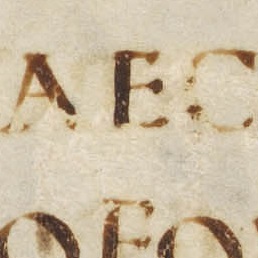 AEC
OEO